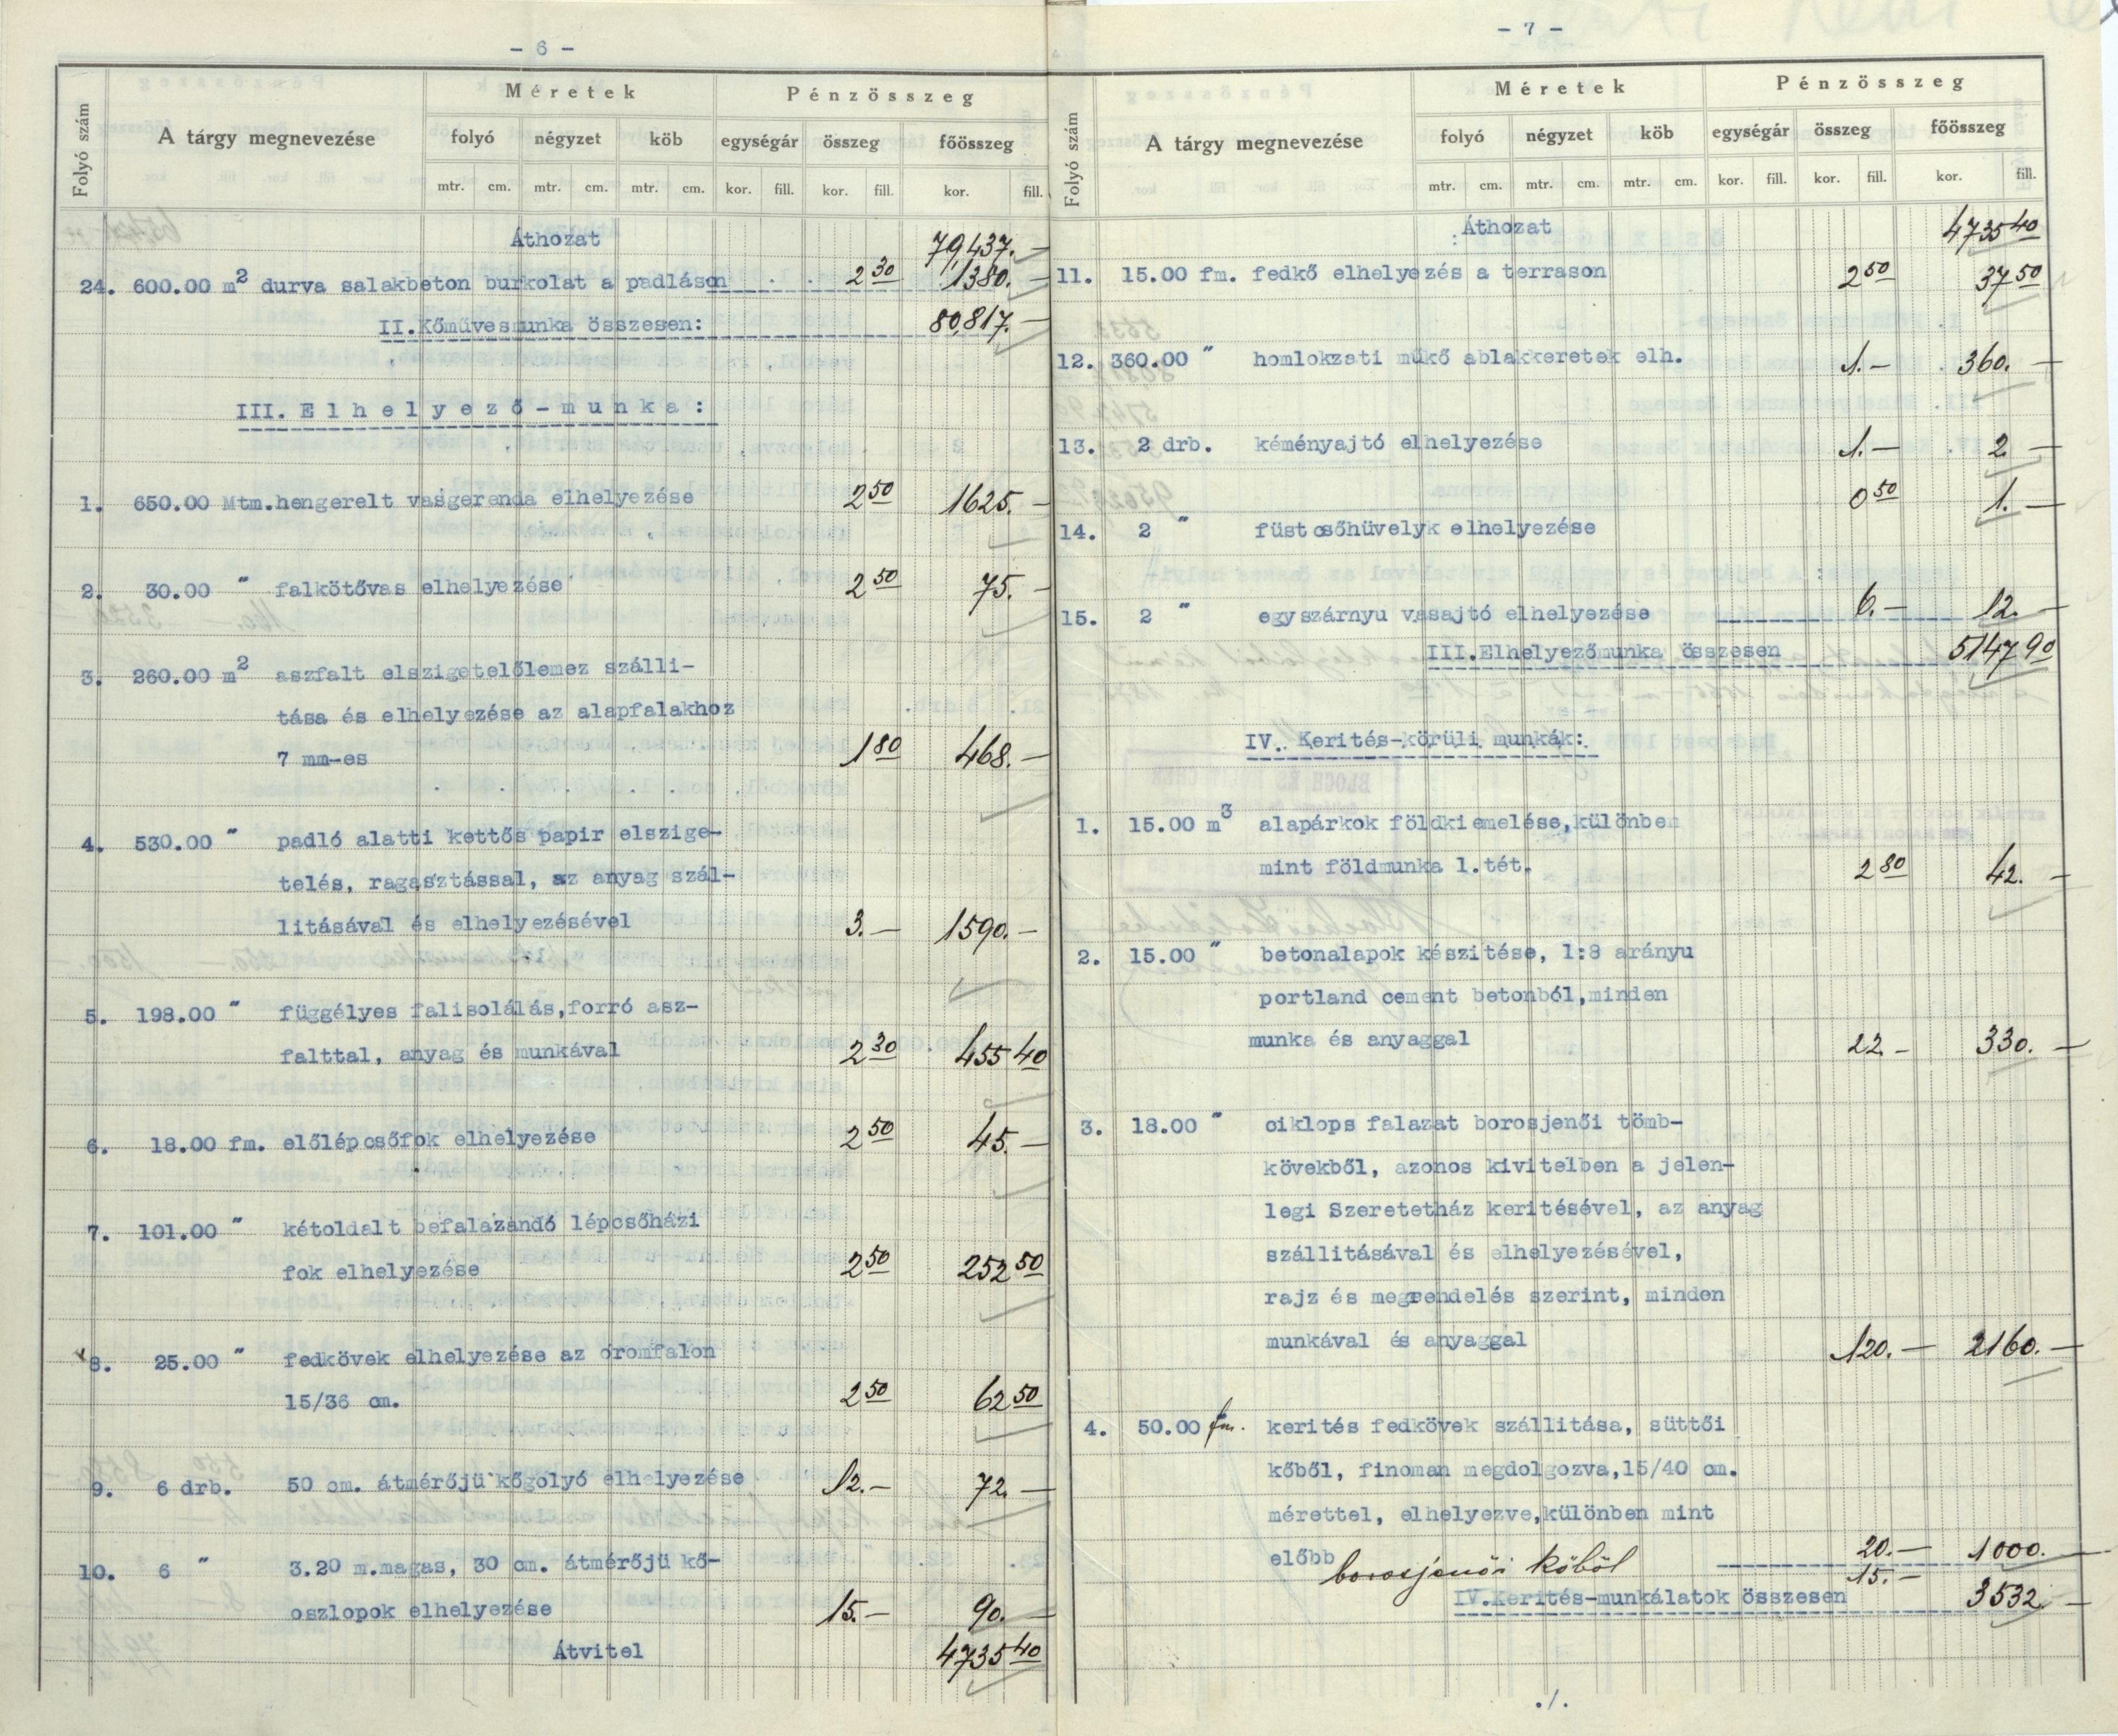 - 6 -
Folyó szám
A tárgy megnevezése
Méretek
Pénzösszeg
folyó négyzet köb egységár összeg főösszeg
mtr. cm. mtr. cm. mtr. cm. kor. fill. kor. fill. kor. fill.
Áthozat 79,437.—
24. 600.00 m2 durva salakbeton burkolat a padláson 2 30 1380.—
II.Kőművesmunka összesen: 80,817.—
III. Elhelyező-munka:
1. 650.00 Mtm.hengerelt vasgerenda elhelyezése 2 50 1625.—
2. 30.00 " falkötővas elhelyezése 2 50 75.—
3. 260.00 m2 aszfalt elszigetelőlemez szálli-
tása és elhelyezése az alapfalakhoz
7 mm-es 1 80 468.—
4. 530.00 " padló alatti kettős papir elszige-
telés, ragasztással, az anyag szál-
litásával és elhelyezésével 3.— 1590.—
5. 198.00 " függélyes falisolálás,forró asz-
falttal, anyag és munkával 2 30 455 40
6. 18.00 fm. előlépcsőfok elhelyezése 2 50 45.—
7. 101.00 " kétoldalt befalazandó lépcsőházi
fok elhelyezése 2 50 252 50
8. 25.00 " fedkövek elhelyezése az oromfalon
15/36 cm. 2 50 62 50
9. 6 drb. 50 cm. átmérőjü kőgolyó elhelyezése 12.— 72.—
10. 6 " 3.20 m.magas, 30 cm. átmérőjü kő-
oszlopok elhelyezése 15.— 90.—
Átvitel 4735 40
- 7 -
Folyó szám
A tárgy megnevezése
Méretek
Pénzösszeg
folyó négyzet köb egységár összeg főösszeg
mtr. cm. mtr. cm. mtr. cm. kor. fill. kor. fill. kor. fill.
Áthozat 4735 40
11. 15.00 fm. fedkő elhelyezés a terrason 2 50 37 50
12. 360.00 " homlokzati műkő ablakkeretek elh. 1.— 360.—
13. 2 drb. kéményajtó elhelyezése 1.— 2.—
0 50 1.—
14. 2 " füstcsőhüvelyk elhelyezése
15. 2 " egyszárnyu vasajtó elhelyezése 6.— 12.—
III.Elhelyezőmunka összesen 5147 90
IV. Kerités-körüli munkák:
1. 15.00 m3 alapárkok földkiemelése,különben
mint földmunka 1.tét. 2 80 42.—
2. 15.00 " betonalapok készitése, 1:8 arányu
portland cement betonból,minden
munka és anyaggal 22.— 330.—
3. 18.00 " ciklops falazat borosjenői tömb-
kövekből, azonos kivitelben a jelen-
legi Szeretetház keritésével, az anyag
szállitásával és elhelyezésével,
rajz és megrendelés szerint, minden
munkával és anyaggal 120.— 2160.—
4. 50.00 fm. kerités fedkövek szállitása, süttői
kőből, finoman megdolgozva,15/40 cm.
mérettel, elhelyezve,különben mint
előbb 20.— 1000.—
borosjenői kőből 15.—
IV.Kerités-munkálatok összesen 3532.—
./.